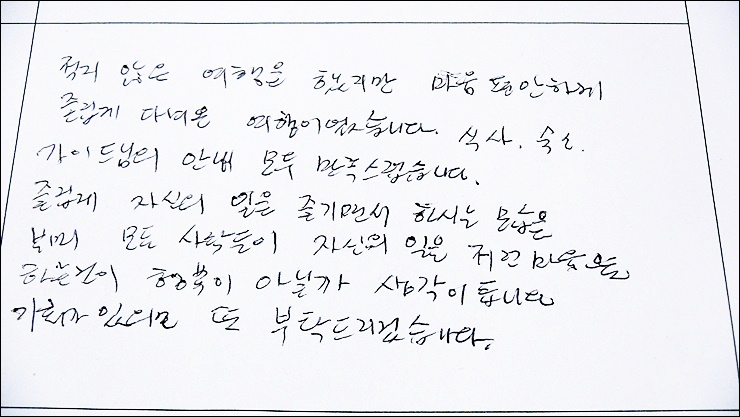 적지 않은 여행을 했지만 마음 편안하게
즐겁게 다녀온 여행이었습니다. 식사. 숙소.
가이드님의 안내 모두 만족스럽습니다.
즐겁게 자신의 일은 즐기면서 하시는 모습을
모든 사람들이 자신의 일을 마음으로
하는것이 행복이 아닐까 생각이 됩니다
기회가 있으면 또 부탁드리겠습니다.